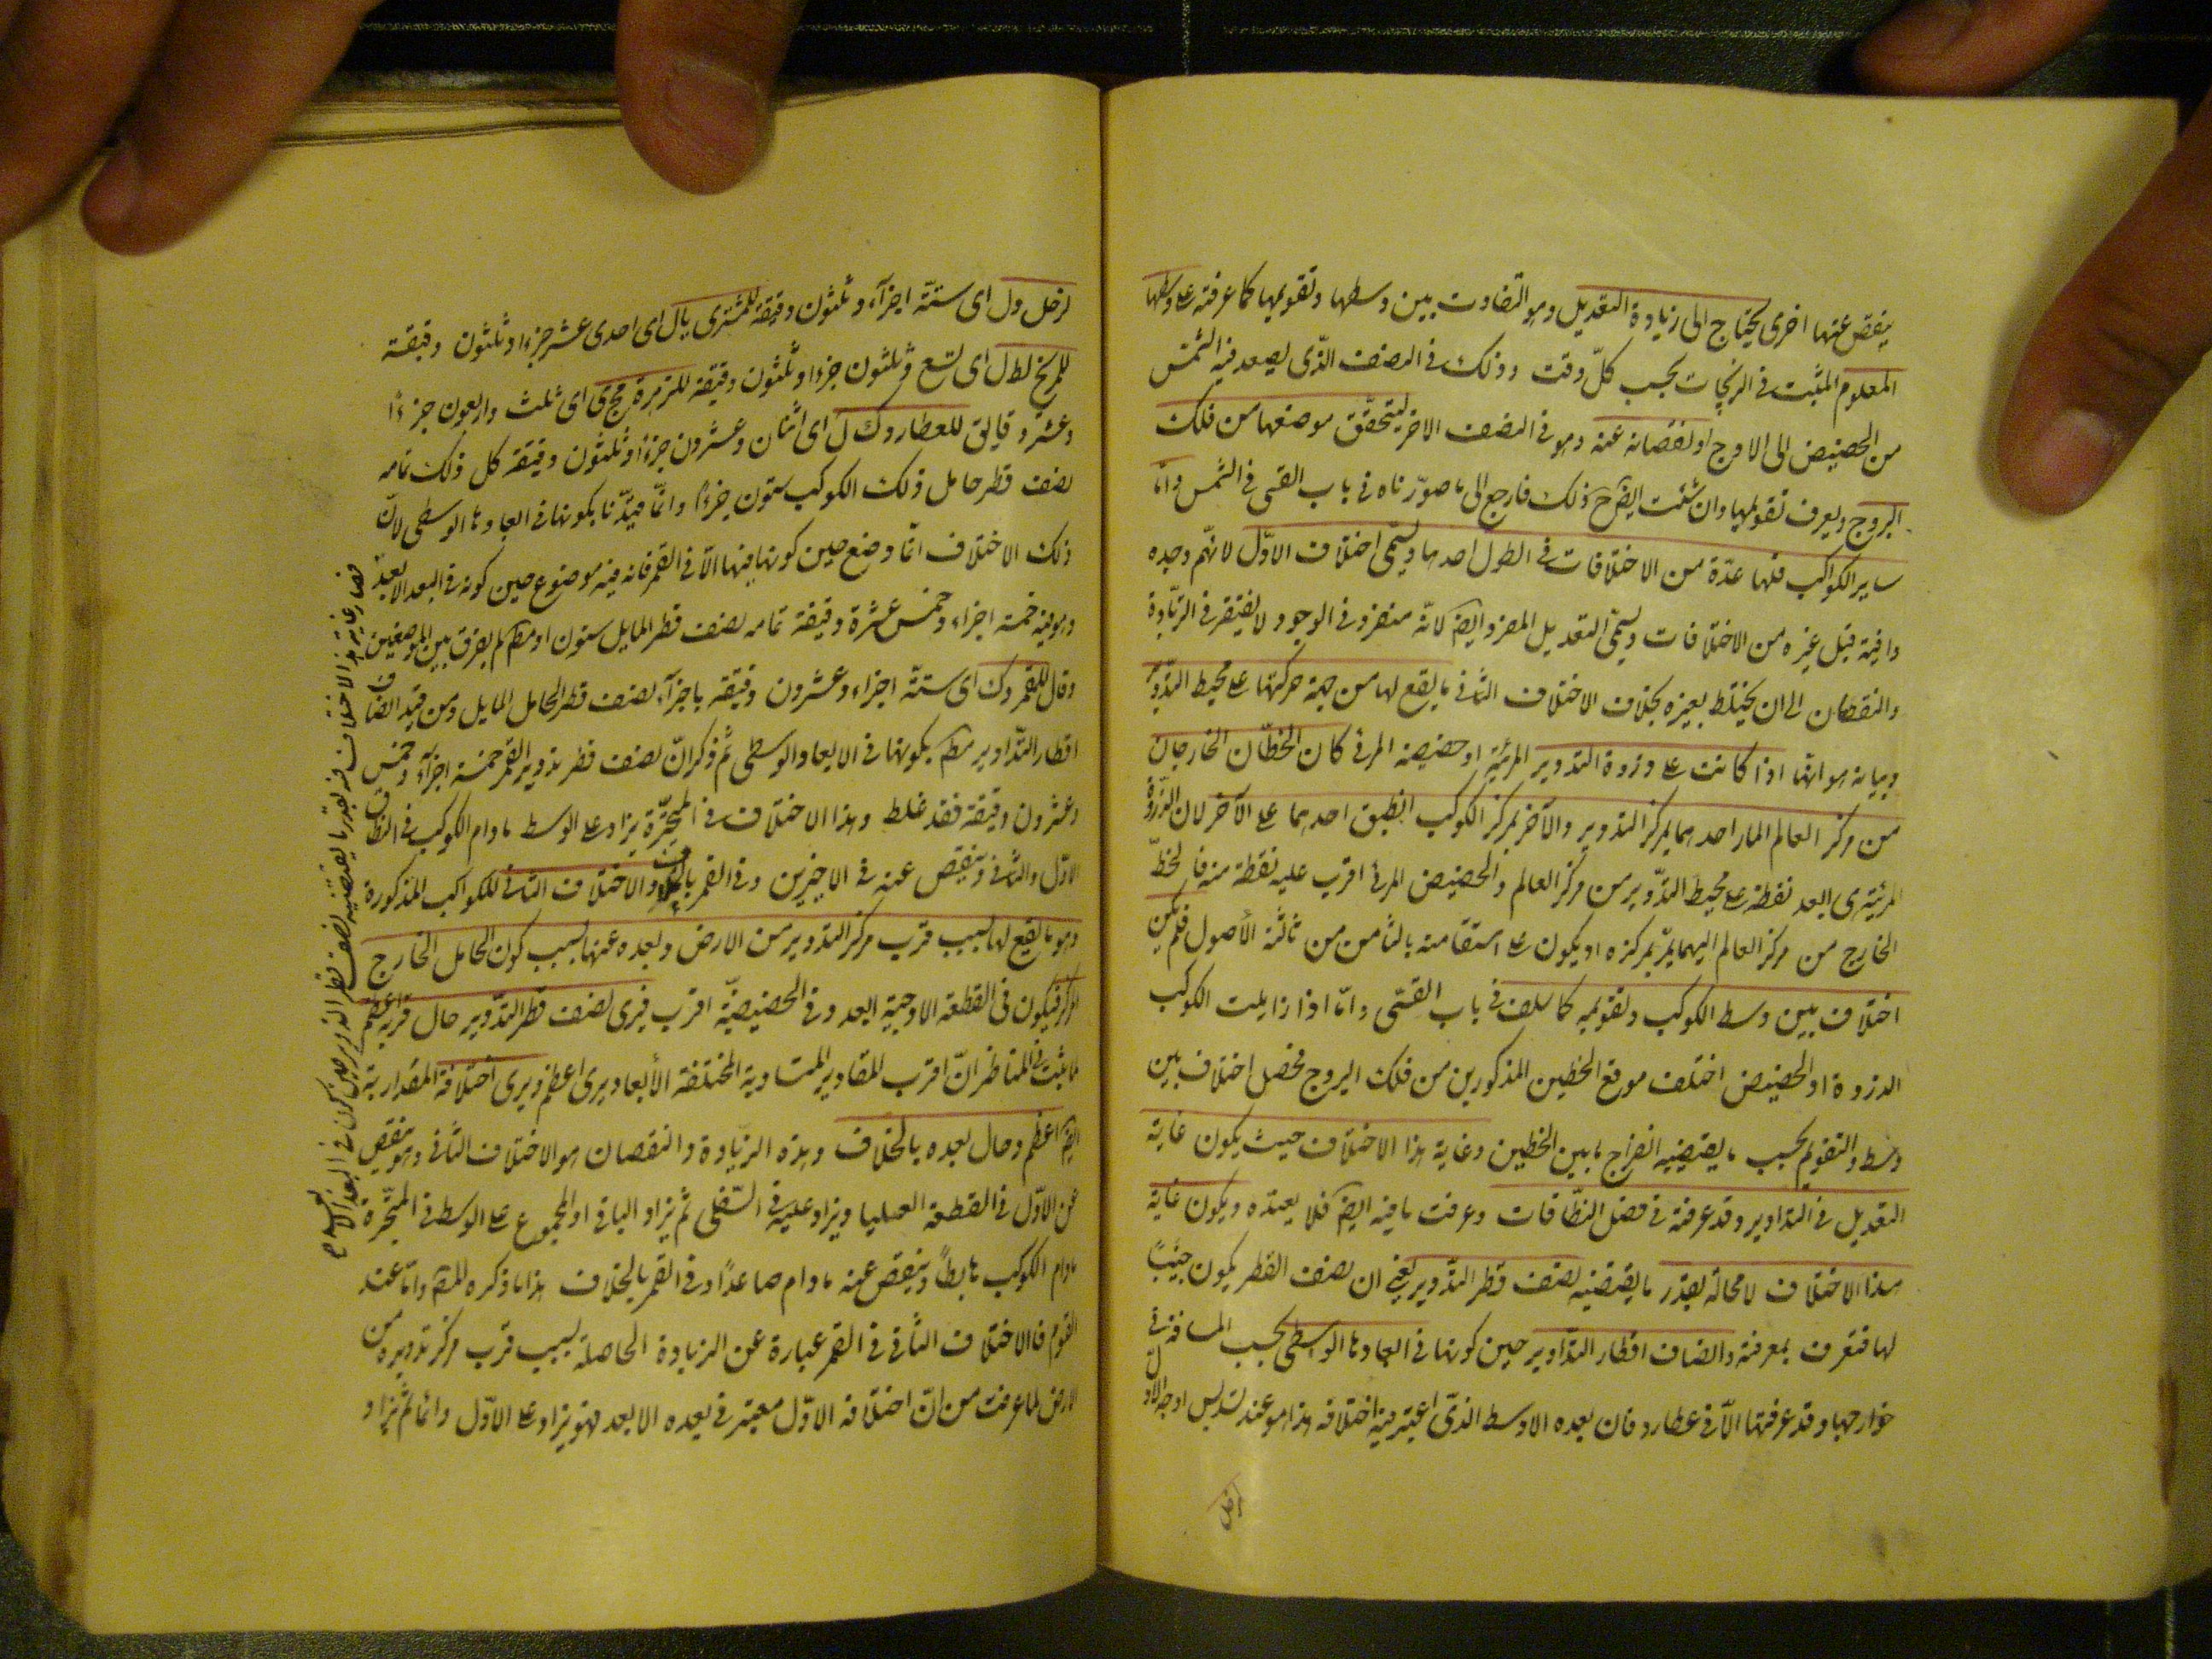 ينقص عنها اخرى يحتاج الى زيادة التعديل وهو التفاوت بين وسطها وتقويمها كما عرفته على وسطها
المعلوم المثبت فى الزيجات بحسب كلّ وقت وذلك فى النصف الّذى يصعد فيه الشمس
من الحضيض الى الاوج او لنقصانه عنه وهو فى النصف الاخر ليتحقّق موضعها من فلك
البروج ويعرف تقويمها وان شئت ايضاح ذلك فارجع الى ما صوّرناه فى باب القسى فى الشمس وامّا
ساير الكواكب فلها عدّة من الاختلافات فى الطول احدها ويسمّى اختلاف الاوّل لانّهم وجدوه
وافية قبل غيره من الاختلافات ويسمّى التعديل المفرد ايضا لانّه منفرد فى الوجود لا يفتقر فى الزّيادة
والنقصان الى ان يختلط بغيره بخلاف الاختلاف الثانى ما يقع لها من جهة حركتها على محيط التدوير
وبيانه هو انها اذا كانت على ذروة التدوير المرئية او حضيضه المرئى كان الخطّان الخارجان
من مركز العالم المار احدهما بمركز التدوير والآخر بمركز الكوكب انطبق احدهما على الآخر لان الذروة
المرئية هى ابعد نقطة على محيط التدّوير من مركز العالم والحضيض المرئى اقرب عليه نقطة منه فالخطّ
الخارج من مركز العالم اليهما يمرّ بمركزه او يكون على استقامته بالثامن من ثالثة الأصول فلم يكن
اختلاف بين وسط الكوكب وتقويمه كما سلف فى باب القسّى وامّا اذا زايلت الكوكب
الذروة او الحضيض اختلف موقع الخطين المذكورين من فلك البروج فحصل اختلاف بين
وسط والتقويم بحسب ما يقتضيه انفراج ما بين الخطين وغاية هذا الاختلاف حيث يكون غاية
التعديل فى التداوير وقد عرفته فى فصل النطّاقات وعرفت ما فيه ايضا فلا يعيده ويكون غاية
هذا الاختلاف لا محالة بقدر ما يقتضيه نصف قطر التدّوير يعنى ان نصف القطر يكون جيبًا
لها فتعرف بمعرفته وانصاف اقطار التدّاوير حين كونها فى ابعادها الوسطى بحسب المسافة فى
خوارجها وقد عرفتها الّا فى عطارد فان بعده الاوسط الذّى اعتبر فيه اختلافه هذا هو عند تسديس اوجه الاوّل
لزحل
لزحل ول اى ستّة اجزآء وثلثون دقيقة للمشترى يال اى احدى عشر جزءا وثلثون دقيقة
للمريخ لطل اى تسع وثلثون جزءا وثلثون دقيقة للزهرة مجى اى ثلث واربعون جزءًا
وعشر دقايق للعطارد كب ل اى اثنان وعشرون جزءًا وثلثون دقيقة كل ذلك تمامه
نصف قطر حامل ذلك الكوكب ستون جزءًا وانّما قيدّنا بكونها فى ابعادها الوسطى لانّ
ذلك الاختلاف انمّا وضع حين كونها فيها الّا فى القمر فانه فيه موضوع حين كونه فى البعد الابعد
وهو فيه خمسة اجزاء وخمس عشرة دقيقة تمامه نصف قطر المايل ستون او مصر لم يفرق بين الموضعين
وقال للقمر وك اى ستّة اجزاء وعشرون دقيقة باجزآء نصف قطر الحامل المايل ومن قيد انصاف
اقطار التدّاوير بكونها فى الابعاد الوسطى ثمّ ذكر انّ نصف قطر تدوير القمر خمسة اجزآء وخمس
وعشرون دقيقة فقد غلط وهذا الاختلاف فى المتحيّرة يزاد على الوسط ما دام الكوكب فى النطاق
الاوّل والثانى وينقص عنه فى الاخيرين وفى القمر بالخلاف والاختلاف الثانى للكواكب المذكورة
وهو ما يقع لها بسبب قرب مركز التدوير من الارض وبعده عنها بسبب كون الحامل الخارج
المركز فيكون فى القطعة الاوجية ابعد وفى الحضيضيّة اقرب فيرى نصف قطر التدّوير حال قربه اعظم
لما ثبت فى المناظر انّ اقرب المقادير المتساوية المختلفة الأبعاد يرى اعظم ويرى اختلافة المقدارية
ايضا اعظم وحال بعده بالخلاف وهذه الزيّادة والنقصان هو الاختلاف الثّانى وهو ينقص
عن الاوّل فى القطعة العليا ويزاد عليه فى السّفلى ثمّ يزاد الباقى او المجموع على الوسط فى المتحّيرة
مادام الكوكب هابطًا وينقص عنه مادام صاعدًا وفى القمر بالخلاف هذا ما ذكره المص وامّا عند
القوم فالاختلاف الثّانى فى القمر عبارة عن الزيادة الحاصلة بسبب قرب مركز تدويره من
الارض لما عرفت من انّ اختلافه الاوّل معتبر فى بعده الابعد فهو يزاد على الاوّل دائما ثمّ يزاد
فصار غاية هذا الاختلاف فيه بقدر ما يقتضيه نصف قطر التدوير حين كونه فى البعد الابعد